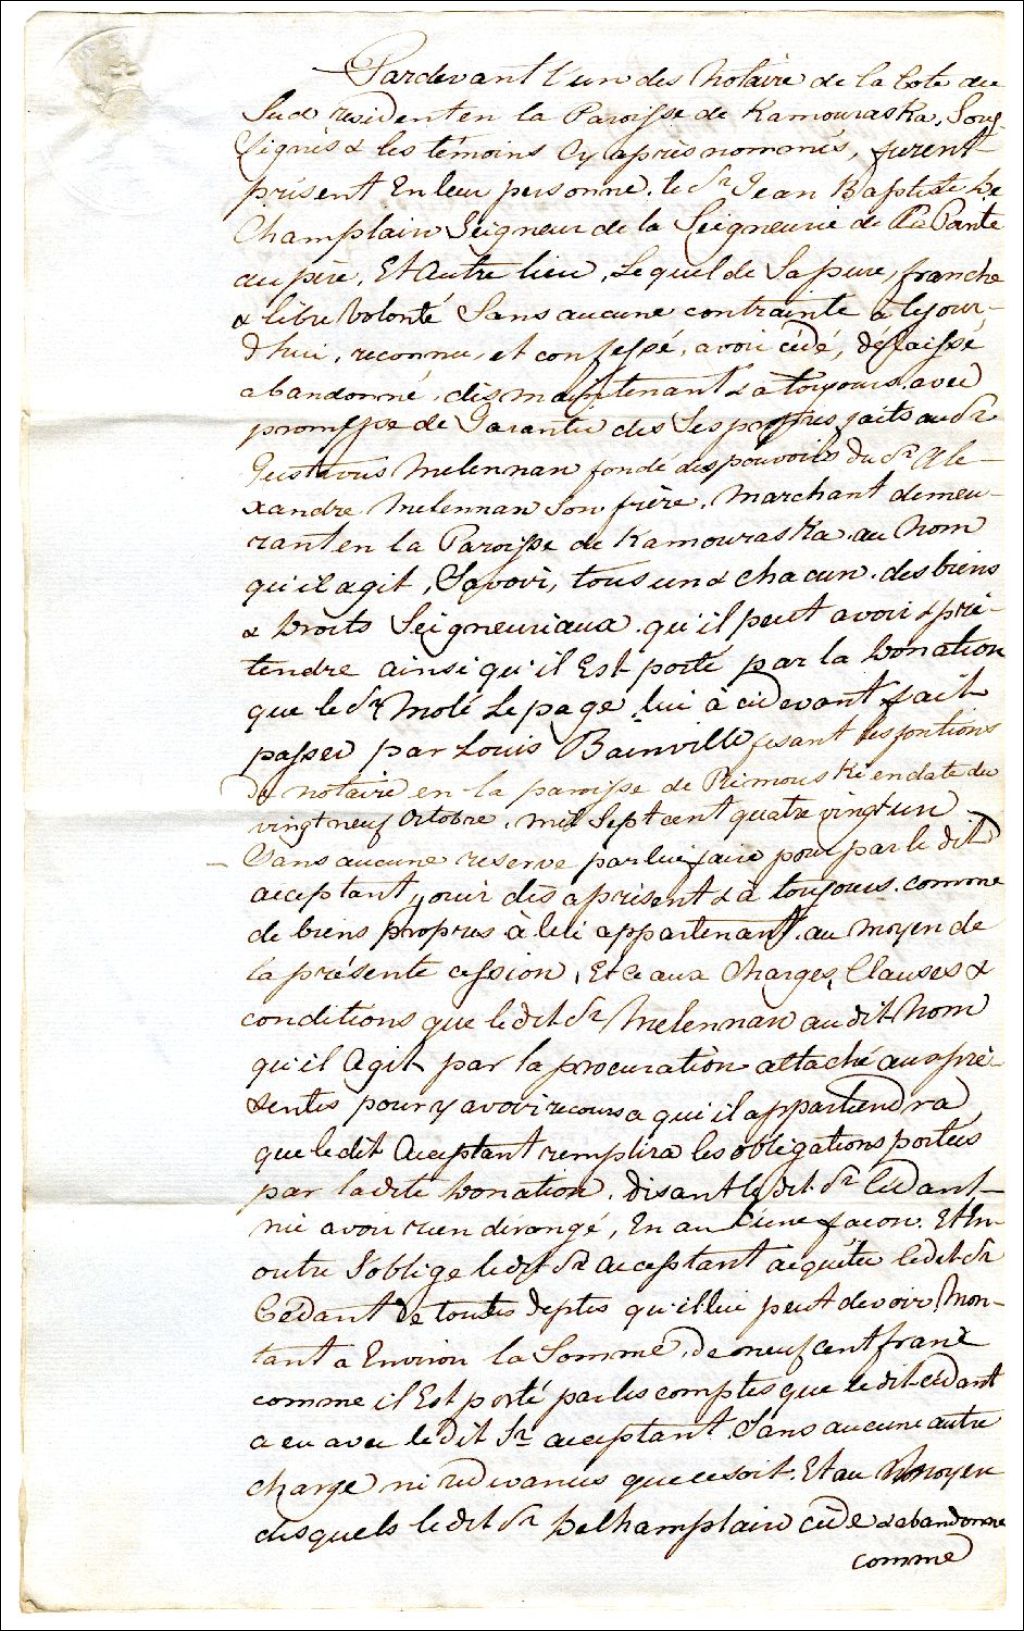 Pardevant l'un des Notaire de la Cote du
Sud resident en la Paroisse de Kamouraska, Sous-
Signés & les témoins Cy après nommés, furent
présent En leur personne. le Sr Jean Baptiste De
Champlain Seigneur de la Seigneurie de La Pointe
au père, Et Autre lieu, Lequel de Sa pure, franche
& libre Volonté Sans aucune contrainte à Cejour-
d'hui, reconnu, et confessé, avoir cédé, délaissé
abandonné, dès maintenant & à toujours, avec
promesse de Garantie des Ses propres faits au Sr
Gustavus Mclennan fondé des pouvoirs du Sr Ale-
xandre Mclennan Son frère, Marchant demeu-
rant en la Paroisse de Kamouraska, au Nom
qu'il agit, Savoir, tous un & chacun, des biens
& Droits Seigneuriaux qu'il peut avoir & pré-
tendre ainsi qu'il Est porté par la Donation
que le Sr Molé Lepage lui à cidevant fait
passer par Louis Bainville fesant les fontions
De notaire en la paroisse de Rimouski en date du
vingt neuf Octobre, mil Sept cent quatre vingt un
- Sans aucune reserve par lui faire pour par le dit
acceptant, jouir dès aprésent & à toujours comme
de biens propres à lui appartenant au moyen de
la présente cession, Et Ce aux Charges, Clauses &
conditions que le dit Sr Mclennan au dit Nom
qu'il Agit par la procuration attaché aux pré-
sentes pour y avoir recours a qui il appartiendra,
que le dit Acceptant remplira les obligations portées
par ladite Donation, disant le dit Sr Cédant
nie avoir rien dérangé, En aucune façon. Et En
outre S'oblige le dit Sr acceptant acquiter le dit Sr
Cédant De toutes deptes qu'il lui peut devoir, Mon-
tant à Environ la Somme, De neuf cent franc
comme il Est porté par les comptes que le dit cédant
a eu avec le Dit Sr acceptant Sans aucune autre
charge ni redevances que ce soit. Et au Moyen
desquels le dit Sr DeChamplain cède & abandonne
comme